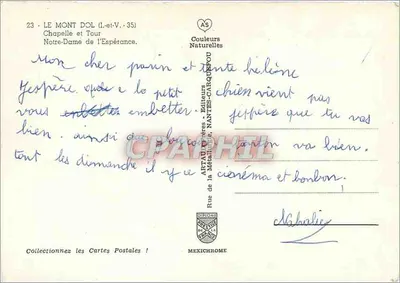 23 - LE MONT DOL (I.-et-V. - 35)
Chapelle et Tour
Notre-Dame de l'Espérance.
AS
Couleurs
Naturelles
Mon cher parin et tente hélène
J'espère que la petit chien vient pas
vous embetter. j'espère que tu vas
bien. ainsi que parin va bien.
tout les dimanche il y a cinéma et bonbon.
Nathalie
ARTAUD Frères - Editeurs
Rue de la Métallurgie, NANTES-CARQUEFOU
CPARPHIL
Collectionnez les Cartes Postales !
MEXICHROME